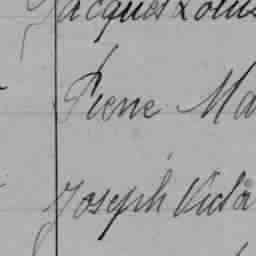 Jacques Louis
Pierre Ma
Joseph Vida